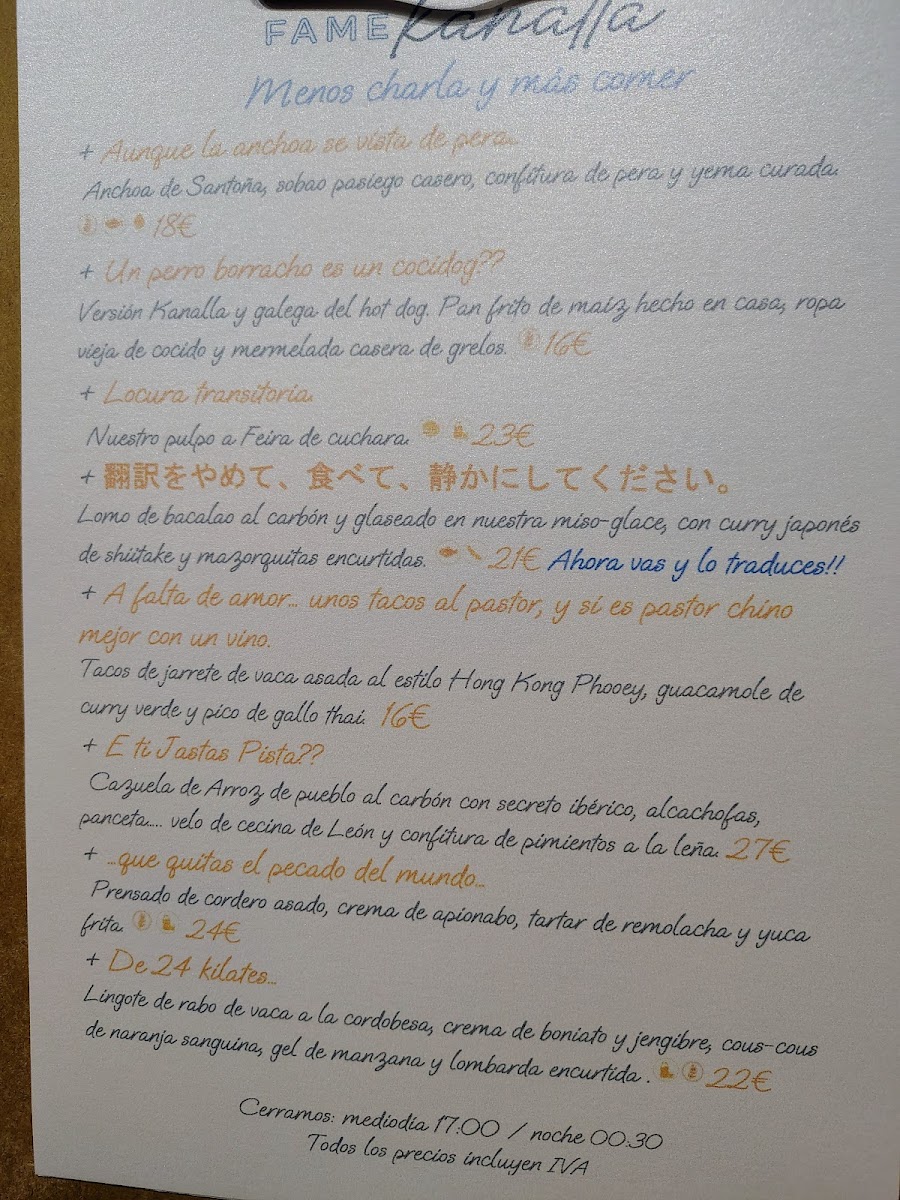 FAME Kanalla
Menos charla y más comer
+ Aunque la anchoa se vista de pera...
Anchoa de Santoña, sobao pasiego casero, confitura de pera y yema curada.
18€
+ Un perro borracho es un cocidog??
Versión Kanalla y galega del hot dog. Pan frito de maíz hecho en casa, ropa
vieja de cocido y mermelada casera de grelos. 16€
+ Locura transitoria.
Nuestro pulpo a Feira de cuchara. 23€
+ 翻訳をやめて、食べて、静かにしてください。
Lomo de bacalao al carbón y glaseado en nuestra miso-glace, con curry japonés
de shiitake y mazorquitas encurtidas. 21€ Ahora vas y lo traduces!!
+ A falta de amor... unos tacos al pastor, y si es pastor chino
mejor con un vino.
Tacos de jarrete de vaca asada al estilo Hong Kong Phooey, guacamole de
curry verde y pico de gallo thai. 16€
+ E ti Jastas Pista??
Cazuela de Arroz de pueblo al carbón con secreto ibérico, alcachofas,
panceta.... velo de cecina de León y confitura de pimientos a la leña. 27€
+ ...que quitas el pecado del mundo...
Prensado de cordero asado, crema de apionabo, tartar de remolacha y yuca
frita. 24€
+ De 24 kilates...
Lingote de rabo de vaca a la cordobesa, crema de boniato y jengibre, cous-cous
de naranja sanguina, gel de manzana y lombarda encurtida . 22€
Cerramos: mediodía 17:00 / noche 00:30
Todos los precios incluyen IVA